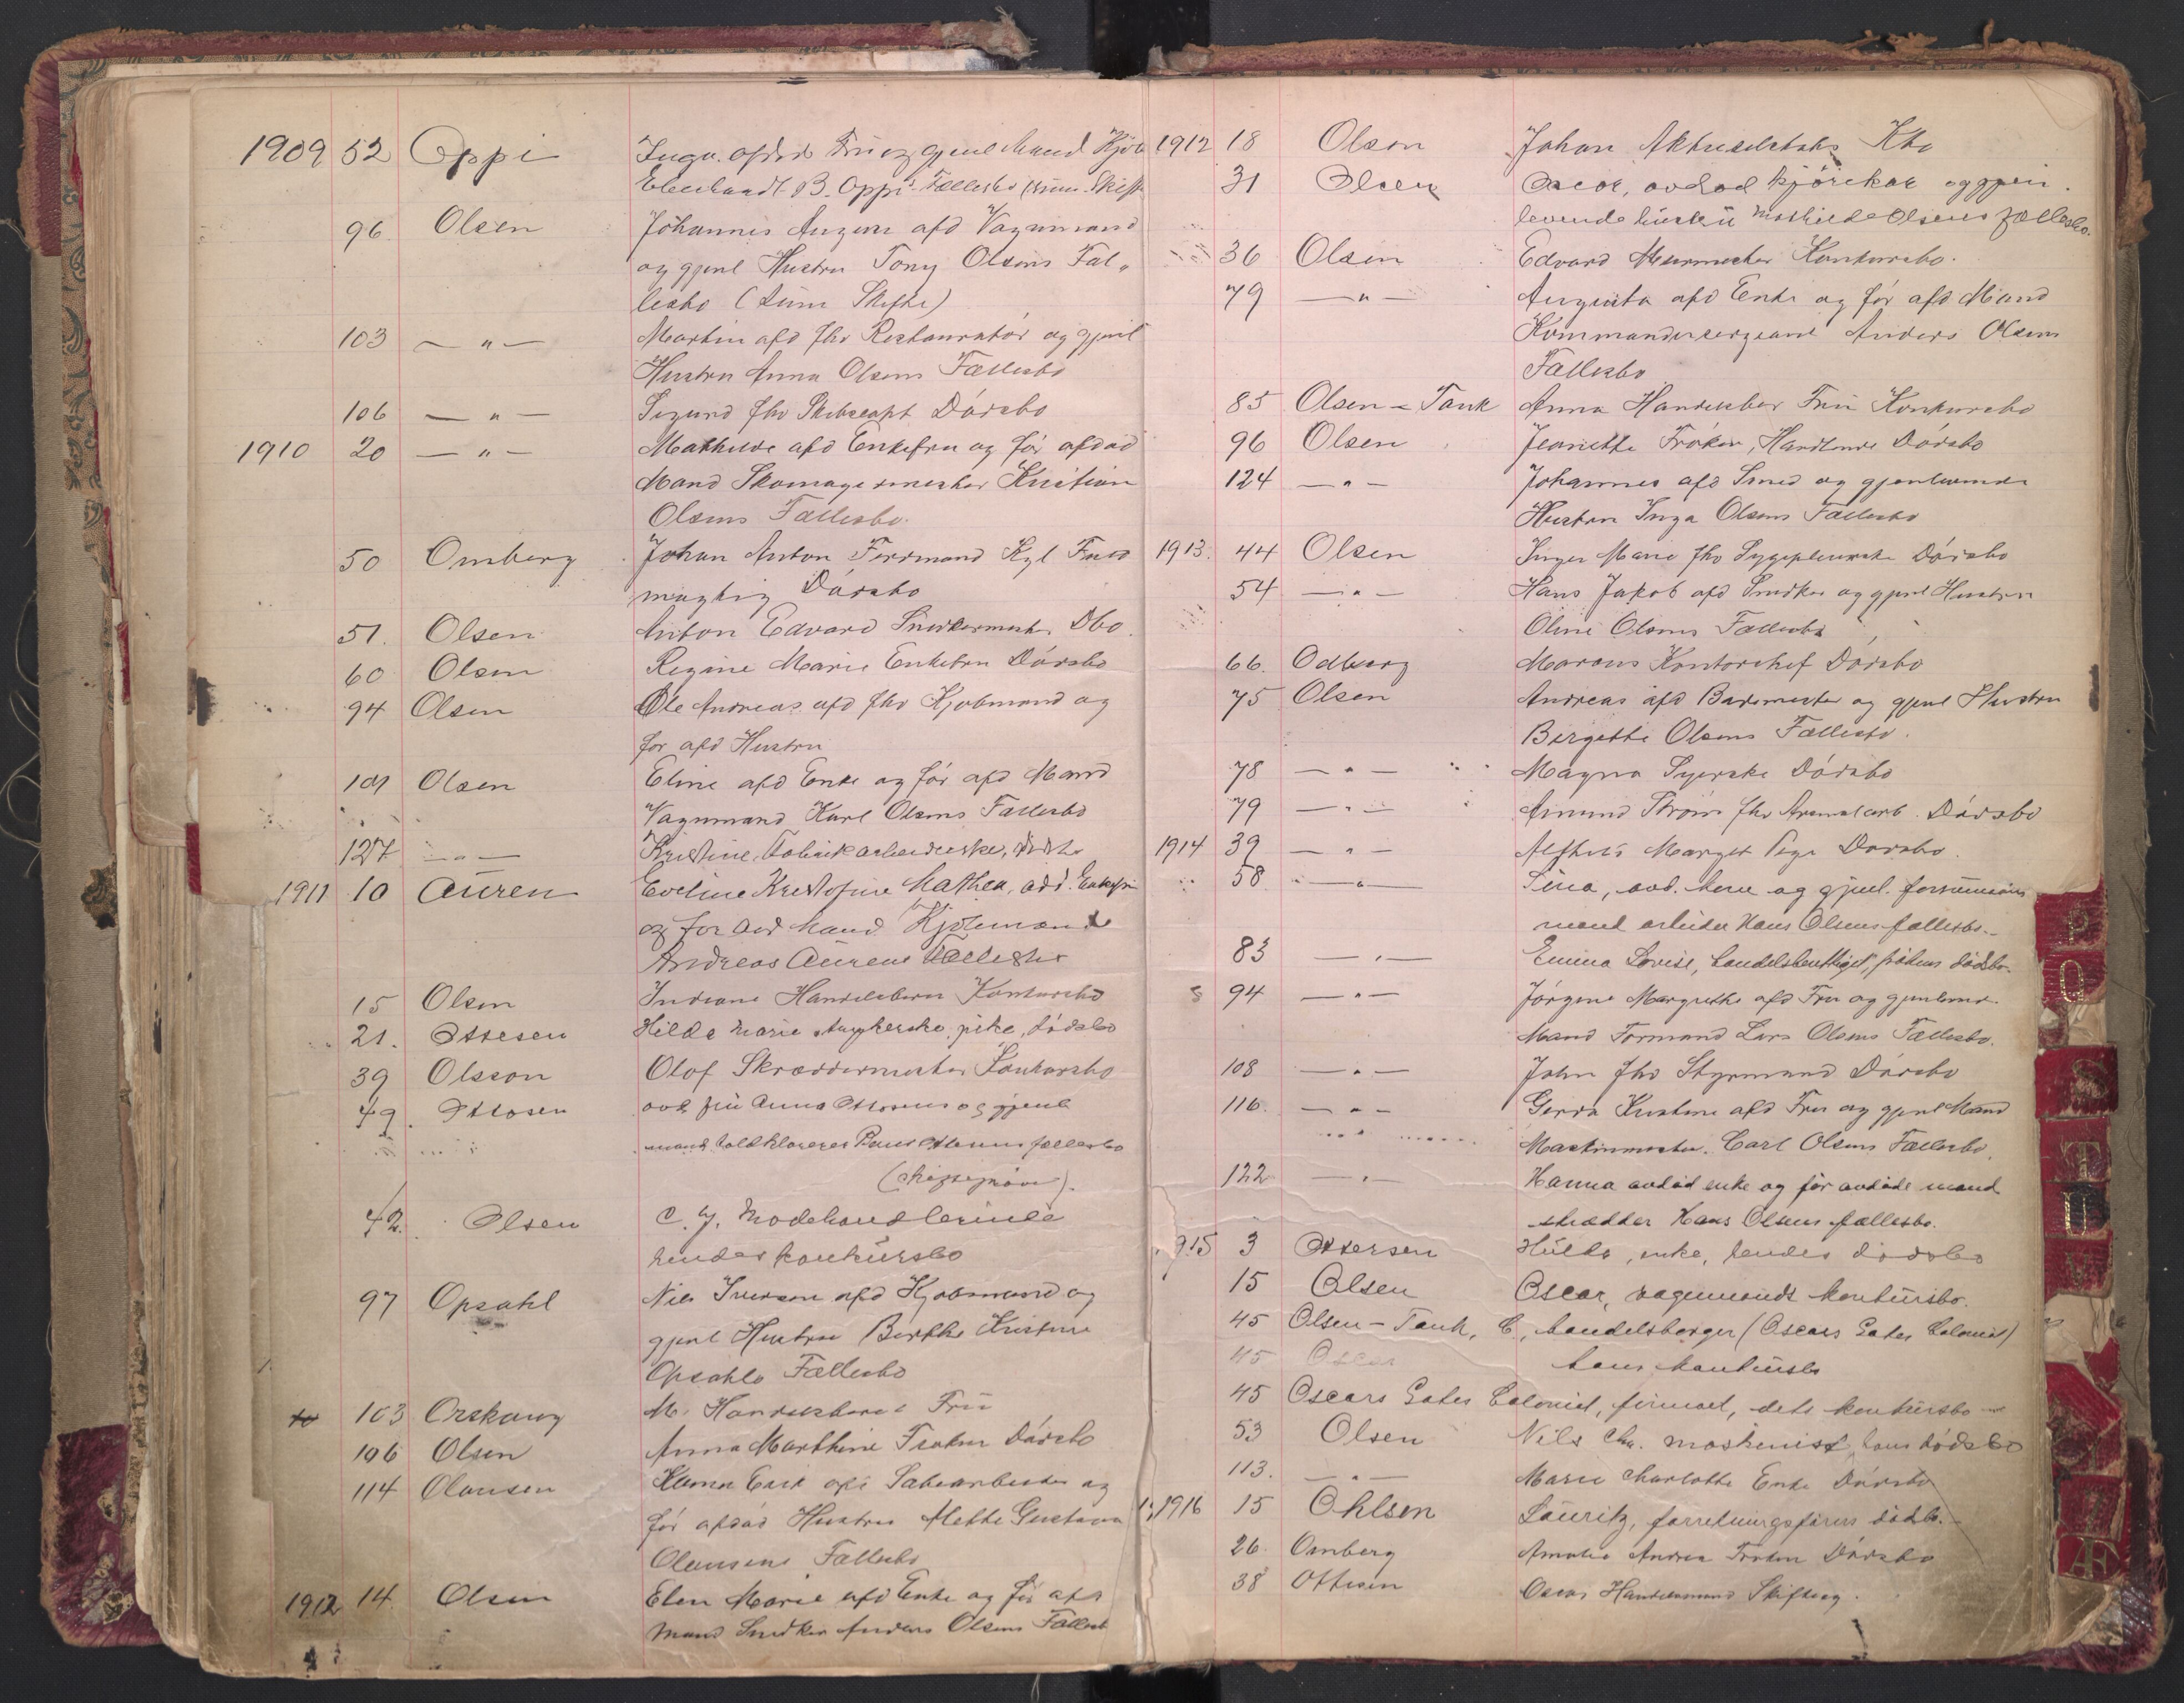 1909 52 Oppi Inga. afdøde Frü og gjenl Mand Kjøb
Eberhardt B. Oppi's Fællesbo (sum. Skifte
96 Olsen Johannes August afd Vagnmand
og gjenl Hustru Tony Olsens Fæl-
lesbo (Süm Skifte)
103 — " — Martin afd fhv Restauratør og gjenl
Hustru Anna Olsens Fællesbo
106 — " — Sigurd fhv Skibscapt Dödsbo
1910 20 — " — Mathilde afd Enkefru og för afdød
Mand Skomagermester Kristian
Olsens Fællesbo.
50 Omberg Johan Anton Ferdinand Kgl Fuld
mægtig Dödsbo
51. Olsen Anton Edvard Snedkermester Dbo.
60 Olsen Regine Marie Enkefru Dödsbo
94 Olsen Ole Andreas afd fhv Kjøbmand og
før afd Hustru
101 Olsen Eline afd Enke og för afd Mand
Vagnmand Karl Olsens Fællesbo
127 — " — Kristine, Fabrikarbeiderske, dödsbo
1911 10 Aüren Eveline Kristofine Mathea, add. Enkefrü
og for Avd Mand Kjøbmand
Andreas Aürens Fællesbo
15 Olsen Indiane Handelsborg Konkursbo
21. Ottesen Hilda Marie strykerske, pike, dödsbo
39 Olsson Olof Skræddermester Konkursbo
49. Ottosen avd. frü Anna Ottosens og gjenl
mand toldklarerer Paul Ottosens fællesbo
42. Olsen C. J. Modehandlerinde
hendes konkürsbo
97 Opsahl Nils Iverson afd Kjøbmand og
gjenl Hustru Berthe Kristine
Opsahls Fællesbo
103 Orskaug M. Handelsborg Frü
106 Olsen Anna Marthine Frøken Dödsbo
114 Olausen afd Sakarbeider og
för afdød Hustru Mette Gustava
Olausens Fællesbo
1912 14. Olsen Elen Marie afd Enke og för afd
Mand Snedker Anders Olsens Fællesb
1912 18 Olson Johan Aktieselskabs Kbo
31 Olsen Oscar, avdød kjörekar og gjen.
levende hüstrü Mathilde Olsens fællesbo.
36 Olsen Edvard Murmester Konkursbo.
79 — " — Augusta afd Enke og för afd Mand
Kommandersergeant Anders Olsens
Fællesbo
85 Olsen - Tank Anna Handelsbor Frü Konkursbo
96 Olsen Jeanette Fröken, Handlende Dödsbo
124 — " — Johannes afd Smed og gjenlevende
Hustru Inga Olsens Fællesbo
1913. 44 Olsen Inger Marie fhv Sygepleierske Dödsbo
54 — " — Hans Jakob afd Snedker og gjenl Hustru
Oline Olsens Fællesbo
66. Odberg Marcus Kontorchef Dödsbo
75 Olsen Andreas afd Bademester og gjenl Hustru
Birgette Olsens Fællesbo.
78 — " — Magna Syerske Dödsbo
79 — " — Amund Strøm fhv Arsenalarb. Dödsbo
1914 39 — " — Margit Pige Dødsbo.
58 — " — Sina, avd. kone og gjenl. forsvunden
mand arbeider Hans Olsens fællesbo.
83 — " — Emma Lovise, handelsberettiget, frökens dödsbo.
94 — " — Jörgine Margrethe afd Fru og gjenlevnd.
Mand Formand Lars Olsens Fællesbo.
108 — " — John fhv Styrmand Dödsbo
116. — " — Gerda Kristine afd Fru og gjenl Mand
Maskinmester Carl Olsens Fællesbo.
122 — " — Hanna avdød enke og før avdöde mand
skrædder Hans Olsens fællesbo.
1915 3 Ottersen Hülda, enke, hendes dødsbo
15 Olsen Oscar, vognmands konkürsbo.
45 Olsen - Tank, C., handelsborger (Oscars Gates Colonial)
45 Oscar hans konkürsbo
45 Oscars Gates Colonial, firmaet, dets konkürsbo —
53 Olsen Nils Chr. maskinist, hans dödsbo
113. — " — Marie Charlotte Enke Dödsbo
1916 15 Ohlsen Laüritz, forretningsförers dödsb.
26 Omberg Amalie Andrea Frøken Dödsbo
38 Ottesen Oscar Handelsmand Skifteog.
P
Q
S
T
U
Æ